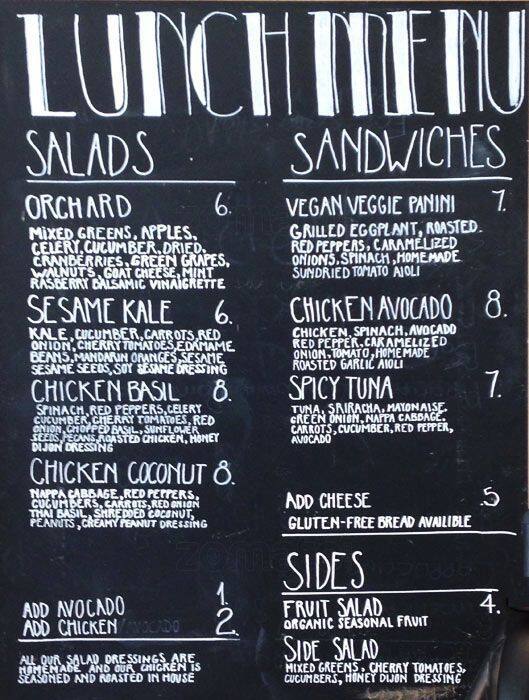 LUNCH MENU
SALADS
ORCHARD 6.
MIXED GREENS, APPLES,
CELERY, CUCUMBER, DRIED
CRANBERRIES, GREEN GRAPES,
WALNUTS, GOAT CHEESE, MINT
RASBERRY BALSAMIC VINAIGRETTE
SESAME KALE 6.
KALE, CUCUMBER, CARROTS, RED
ONION, CHERRY TOMATOES, EDAMAME
BEANS, MANDARIN ORANGES, SESAME
SESAME SEEDS, SOY SESAME DRESSING
CHICKEN BASIL 8.
SPINACH, RED PEPPERS, CELERY
CUCUMBER, CHERRY TOMATOES, RED
ONION, CHOPPED BASIL, SUNFLOWER
SEEDS, PECANS, ROASTED CHICKEN, HONEY
DIJON DRESSING
CHICKEN COCONUT 8.
NAPPA CABBAGE, RED PEPPERS,
CUCUMBERS, CARROTS, RED ONION
THAI BASIL, SHREDDED COCONUT,
PEANUTS, CREAMY PEANUT DRESSING
ADD AVOCADO 1.
ADD CHICKEN/AVOCADO 2.
ALL OUR SALAD DRESSINGS ARE
HOMEMADE AND OUR CHICKEN IS
SEASONED AND ROASTED IN HOUSE
SANDWICHES
VEGAN VEGGIE PANINI 7.
GRILLED EGGPLANT, ROASTED
RED PEPPERS, CARAMELIZED
ONIONS, SPINACH, HOMEMADE
SUNDRIED TOMATO AIOLI
CHICKEN AVOCADO 8.
CHICKEN, SPINACH, AVOCADO
RED PEPPER, CARAMELIZED
ONION, TOMATO, HOMEMADE
ROASTED GARLIC AIOLI
SPICY TUNA 7.
TUNA, SRIRACHA, MAYONAISE,
GREEN ONION, NAPPA CABBAGE,
CARROTS, CUCUMBER, RED PEPPER,
AVOCADO
ADD CHEESE .5
GLUTEN-FREE BREAD AVAILIBLE
SIDES
FRUIT SALAD 4.
ORGANIC SEASONAL FRUIT
SIDE SALAD
MIXED GREENS, CHERRY TOMATOES,
CUCUMBERS, HONEY DIJON DRESSING